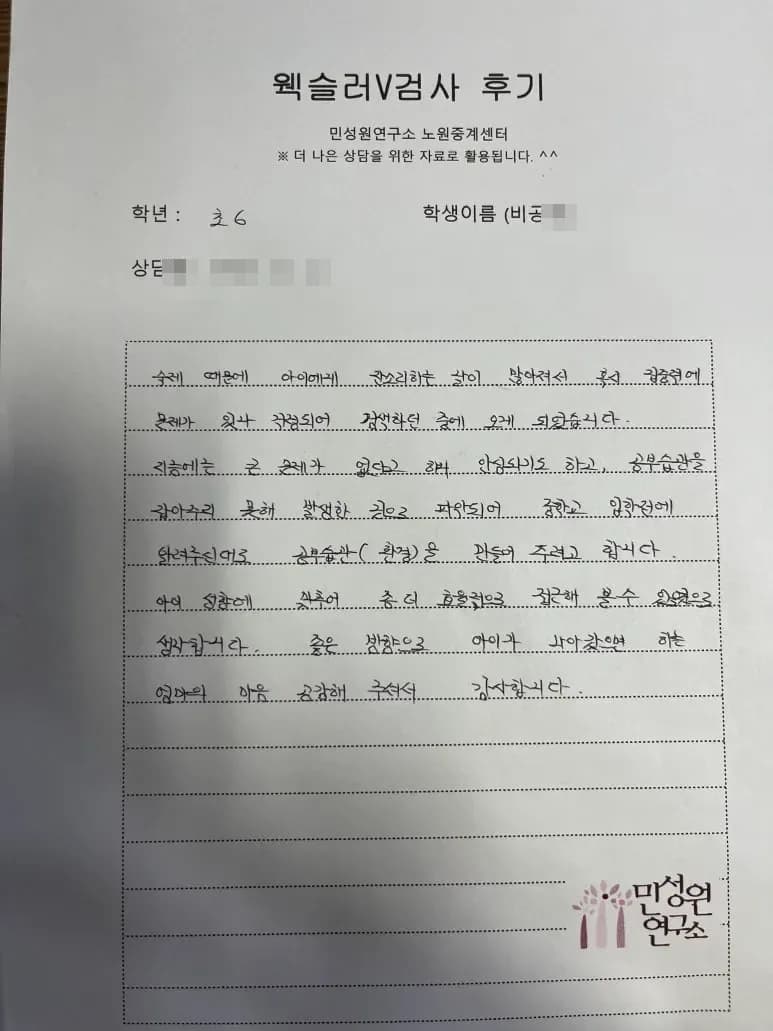 웩슬러V검사 후기
민성원연구소 노원중계센터
※ 더 나은 상담을 위한 자료로 활용됩니다. ^^
학년 : 초6 학생이름 (비공
상담
숙제 때문에 아이에게 잔소리하는 날이 많아져서 혹시 집중력에
문제가 있나 걱정되어 검색하던 중에 오게 되었습니다.
지능에는 큰 문제가 없다고 하니 안심되기도 하고, 공부습관을
잡아주지 못해 발생한 것으로 파악되어 중학교 입학전에
알려주신대로 공부습관(환경)을 만들어 주려고 합니다.
아이 성향에 맞추어 좀 더 효율적으로 접근해 볼 수 있을것으로
생각합니다. 좋은 방향으로 아이가 나아갔으면 하는
엄마의 마음 공감해 주셔서 감사합니다.
민성원
연구소